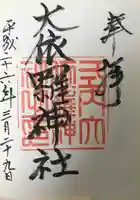 奉拝
大依羅神社
平成二十六年三月二十九日